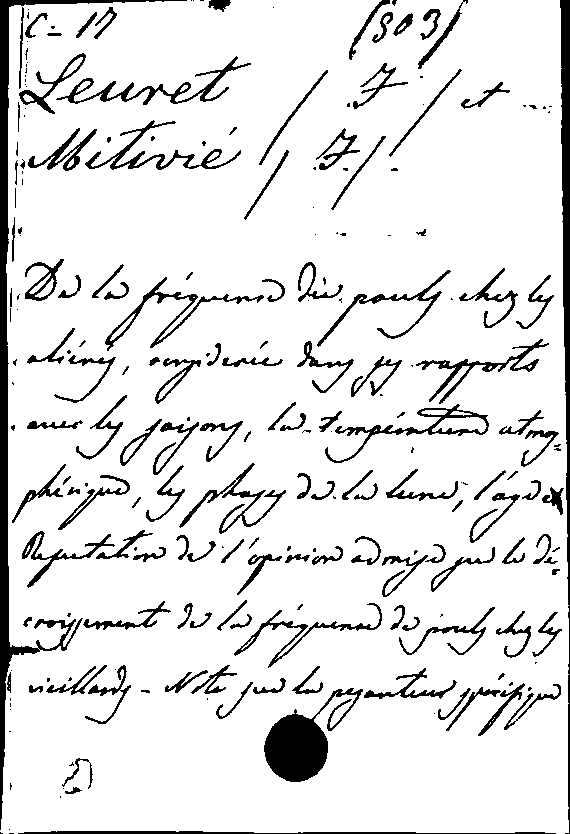 C = 17 (303)
Leuret / F / et
Mitivié / F. / .
De la fréquence du pouls chez les
aliénés, considérée dans ses rapports
avec les saisons, la température atmos=
phérique, les phases de la lune, l'âge &
Refutation de l'opinion admise sur le dé=
croissement de la fréquence du pouls chez les
vieillards - Note sur la pesanteur spécifique